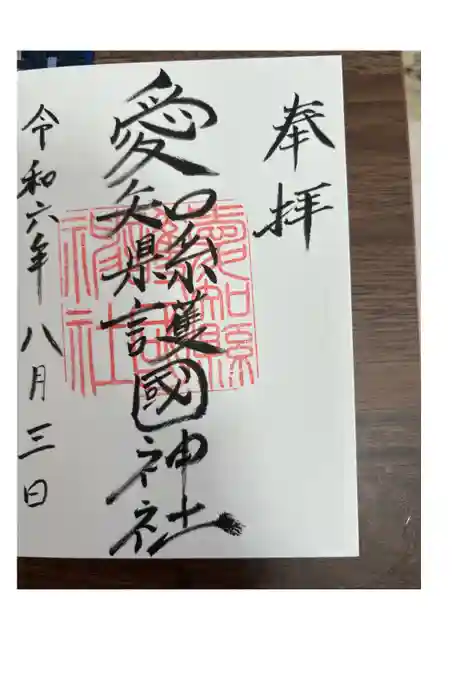 奉拝
愛知縣護國神社
愛知縣
護國
神社
令和六年八月三日